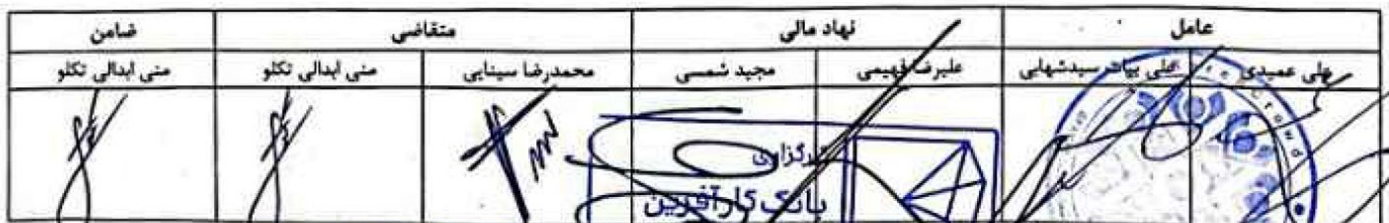 عامل نهاد مالی متقاضی ضامن
علی عمیدی علی بیات سیدشهابی علیرضا فهیمی مجید شمسی محمدرضا سینایی منی ابدالی تکلو منی ابدالی تکلو
کارگزاری
بانک کارآفرین